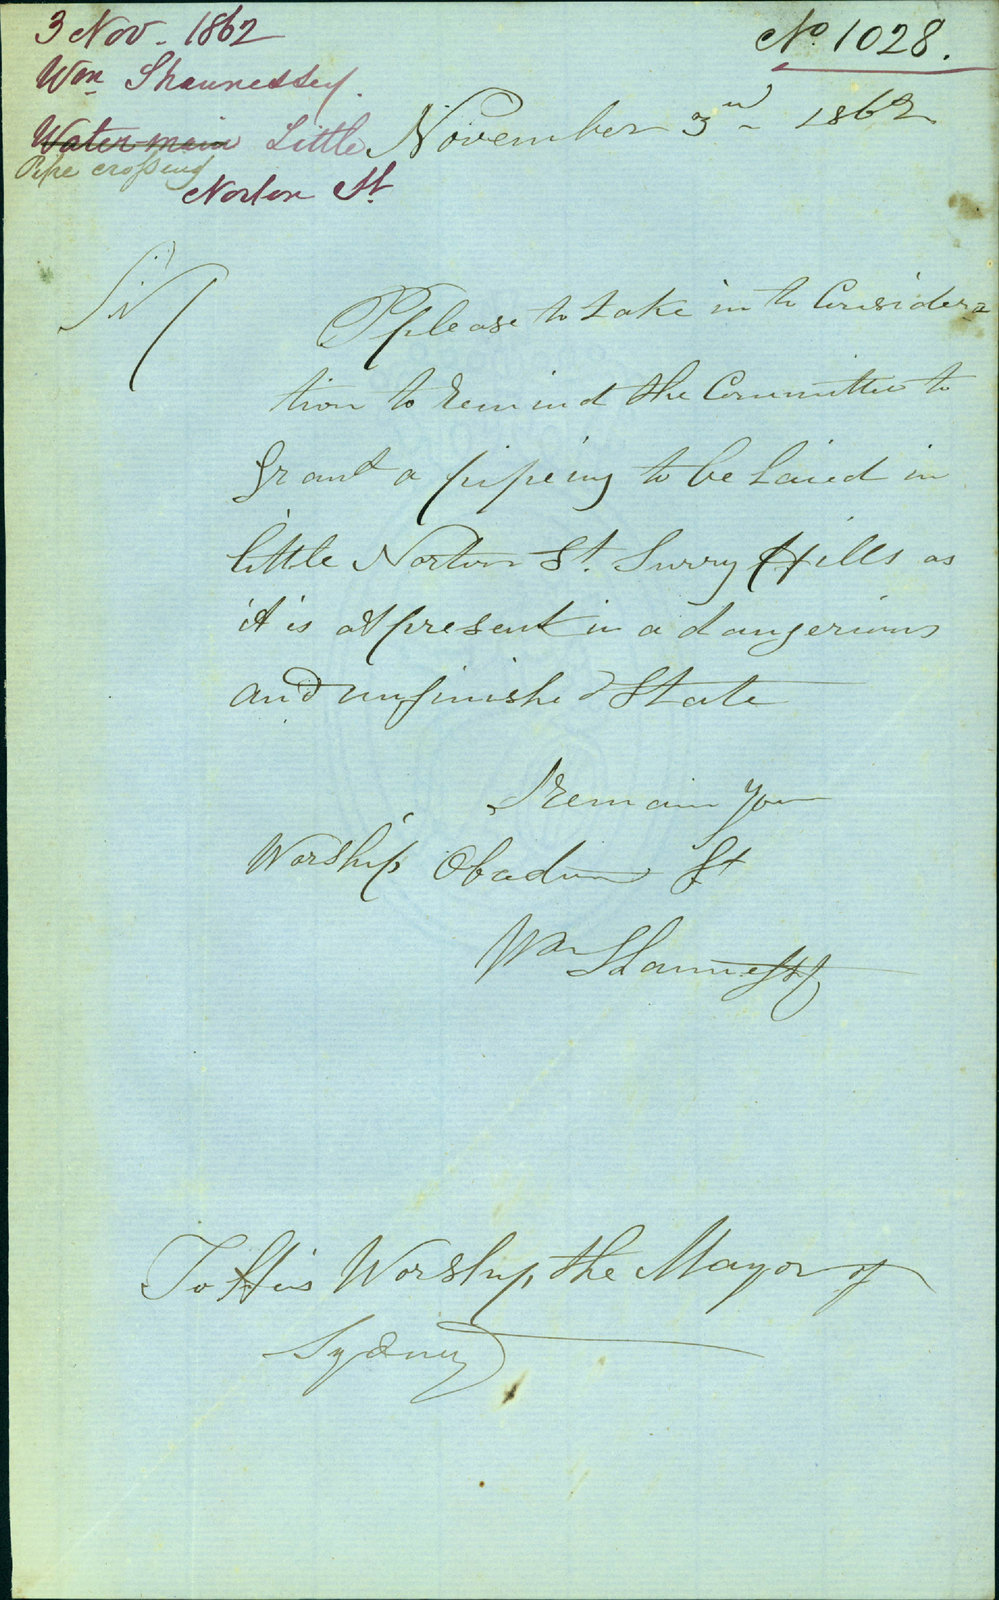 3 Nov. 1862
No. 1028.
Wm Shaunessey.
Water main Little
Pipe crossing
Norton St.
November 3rd 1862
Sir
Pplease to take in to Considera
tion to remind the Committee to
Grant a pipeing to be Laied in
little Norton St. Surry Hills as
it is at present in a dangerious
and unfinished State
I remain your
Worship Obadien St
Wm Shaunessy
To His Worship, the Mayor of
Sydney